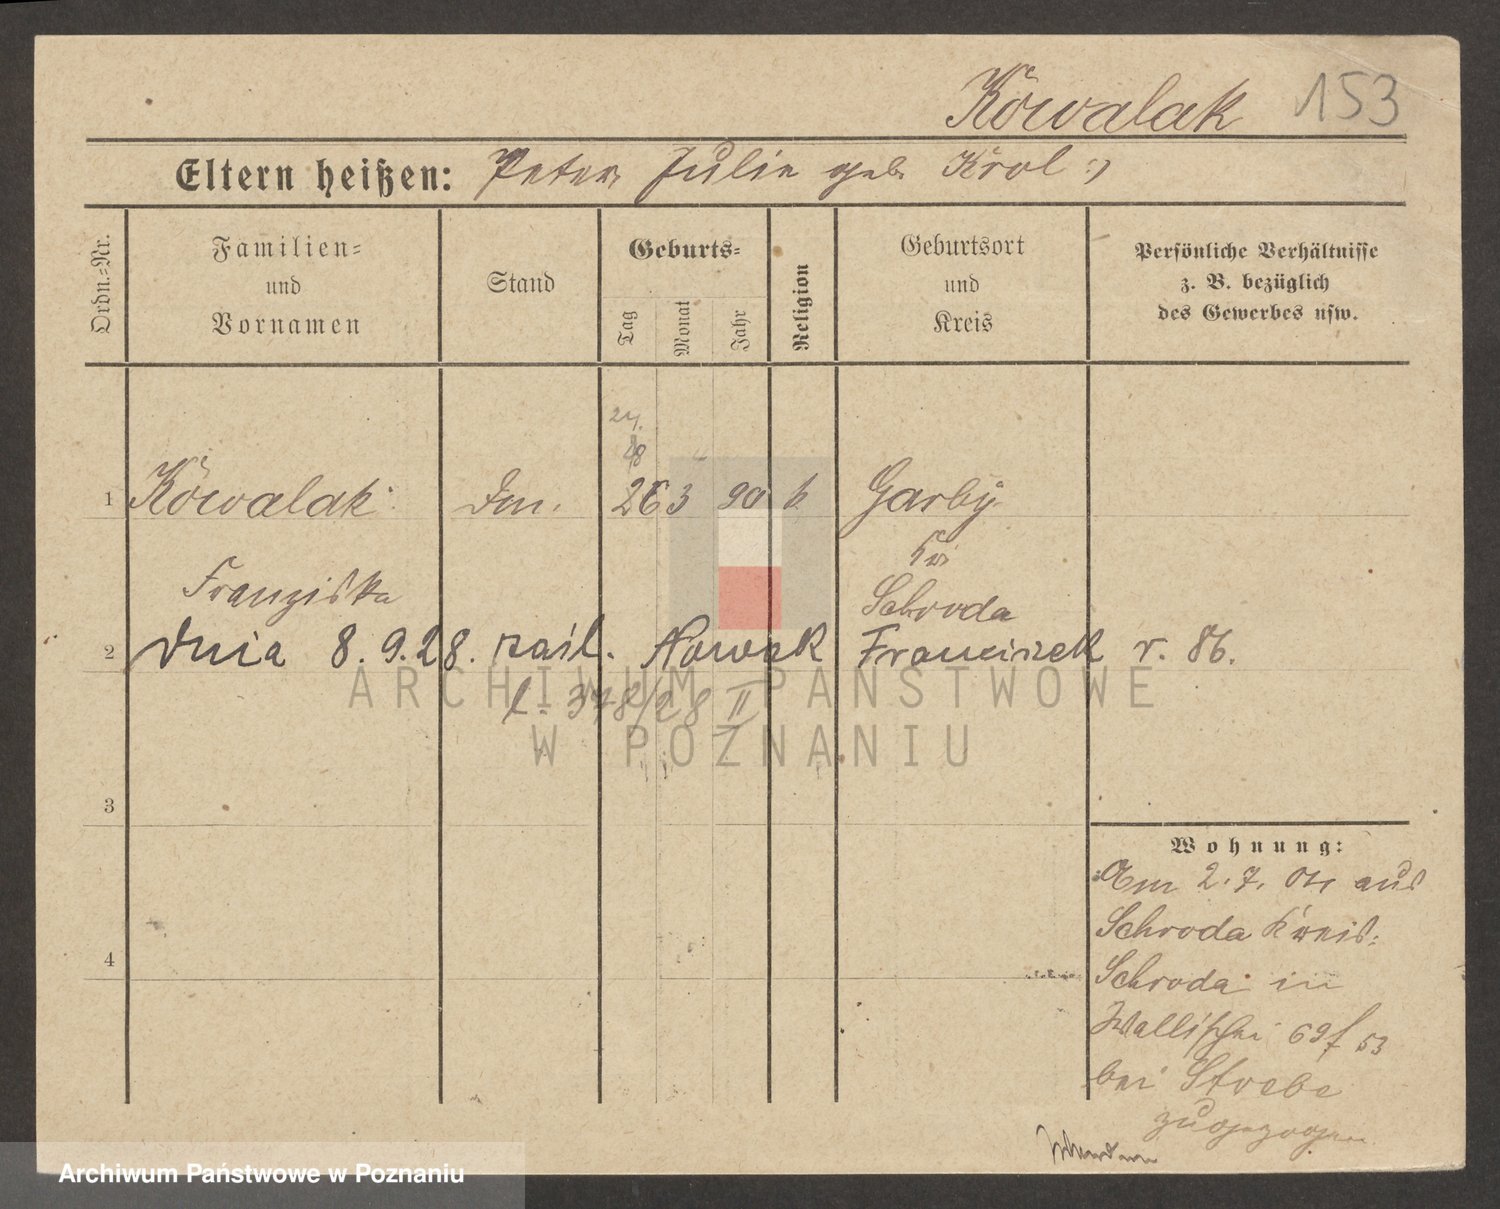 Kowalak 153
Eltern heißen: Peter, Julie geb. Krol :)
Ordn.=Nr.
Familien=
und
Vornamen
Stand
Geburts=
Tag
Monat
Jahr
Religion
Geburtsort
und
Kreis
Persönliche Verhältnisse
z. B. bezüglich
des Gewerbes usw.
24.
1 Kowalak 26 3 90 k Garby
Kr.
Franziska Schroda
2 dnia 8.9.28. zaśl. Nowak Franciszek r. 86.
l. 378/28 II
3
Wohnung:
Am 2.7. aus
Schroda Kreis:
4
Schroda in
Wallischei 69 53
bei Strebe
zugezogen
ARCHIWUM PAŃSTWOWE
W POZNANIU
Archiwum Państwowe w Poznaniu